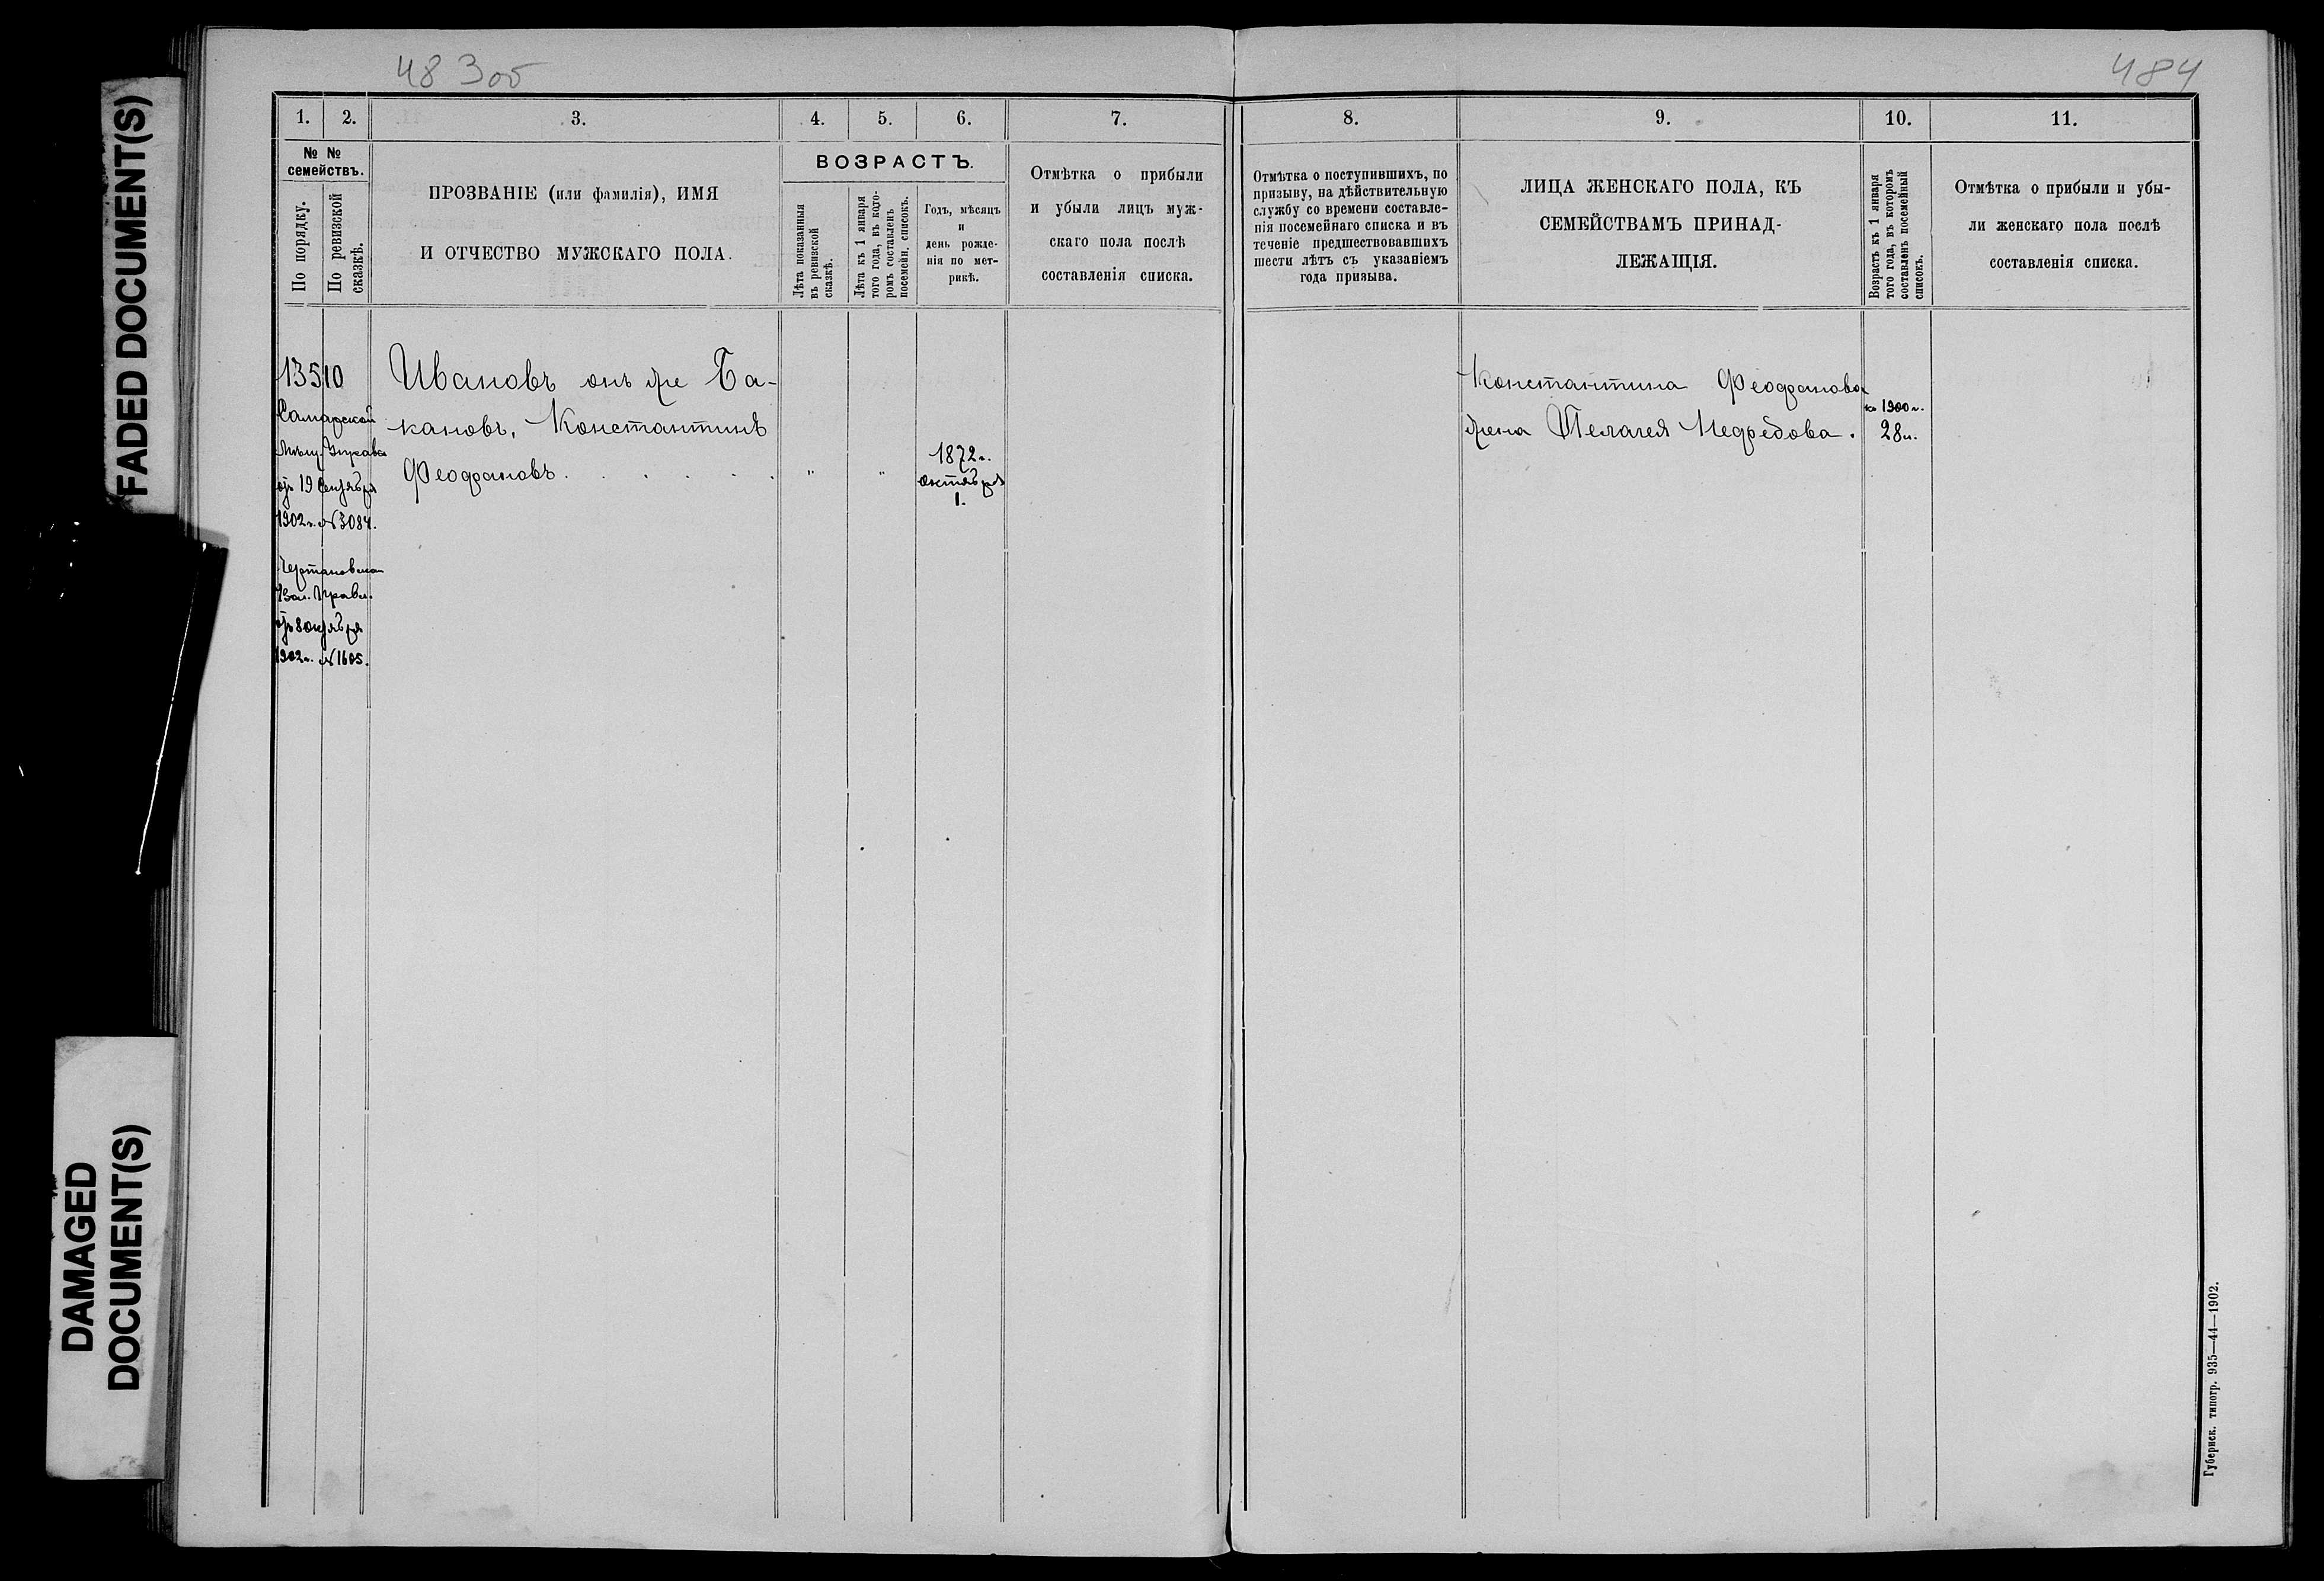 FADED DOCUMENT(S)
DAMAGED
DOCUMENT(S)
483об
484
1.
2.
3.
4.
5.
6.
7.
8.
9.
10.
11.
№ №
семействъ.
По порядку.
По ревизской
сказкѣ.
ПРОЗВАНІЕ (или фамилія), ИМЯ
И ОТЧЕСТВО МУЖСКАГО ПОЛА.
ВОЗРАСТЪ.
Лѣта показанныя
въ ревизской
сказкѣ.
Лѣта къ 1 января
того года, въ кото-
ромъ составленъ
посемейн. списокъ.
Годъ, мѣсяцъ
и
день рожде-
нія по мет-
рикѣ.
Отмѣтка о прибыли
и убыли лицъ муж-
скаго пола послѣ
составленія списка.
Отмѣтка о поступившихъ, по
призыву, на дѣйствительную
службу со времени составле-
нія посемейнаго списка и въ
теченіе предшествовавшихъ
шести лѣтъ съ указаніемъ
года призыва.
ЛИЦА ЖЕНСКАГО ПОЛА, КЪ
СЕМЕЙСТВАМЪ ПРИНАД-
ЛЕЖАЩІЯ.
Возрастъ къ 1 января
того года, въ которомъ
составленъ посемейный
списокъ.
Отмѣтка о прибыли и убы-
ли женскаго пола послѣ
составленія списка.
13510
Самарской
Мѣщ. Управы
отъ 19 Сентября
1902 г. №3084.
Вол. Правл.
отъ 8 октября
1902 г. №1605.
Ивановъ онъ же Ба-
кановъ, Константинъ
Феофановъ . . . . .
" "
1872 г.
октября
1.
Константина Феофанова
жена Пелагея
къ 1900 г.
28 л.
Губернск. типогр. 935—44—1902.